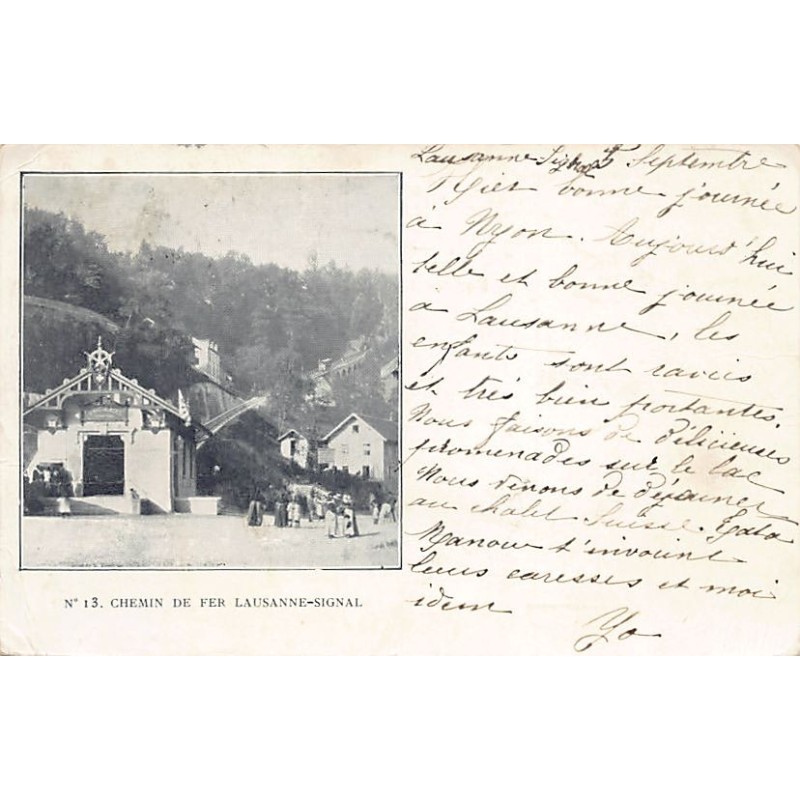 Lausanne Signal Septembre
Hier bonne journée
à Nyon. Aujourd'hui
belle et bonne journée
à Lausanne, les
enfants sont ravies
et très bien portantes.
Nous faisons de délicieuses
promenades sur le lac
Nous venons de déjeuner
au chalet Suisse.
Manou t'envoient
leurs caresses et moi
idem
Yo
N° 13. CHEMIN DE FER LAUSANNE-SIGNAL